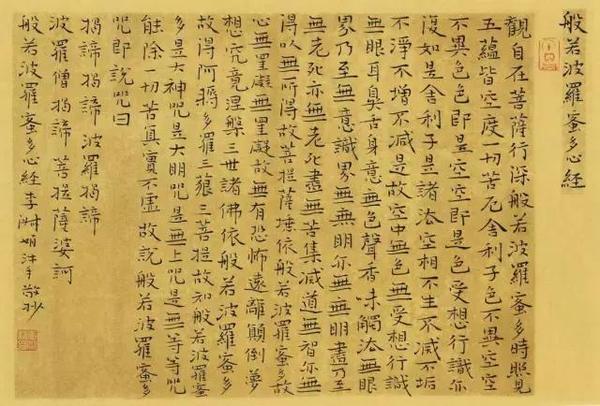 般若波羅蜜多心經
觀自在菩薩行深般若波羅蜜多時照見
五蘊皆空度一切苦厄舍利子色不異空空
不異色色即是空空即是色受想行識亦
復如是舍利子是諸法空相不生不滅不垢
不淨不增不減是故空中無色無受想行識
無眼耳鼻舌身意無色聲香味觸法無眼
界乃至無意識界無無明亦無無明盡乃至
無老死亦無老死盡無苦集滅道無智亦無
得以無所得故菩提薩埵依般若波羅蜜多故
心無罣礙無罣礙故無有恐怖遠離顛倒夢
想究竟涅槃三世諸佛依般若波羅蜜多
故得阿耨多羅三藐三菩提故知般若波羅蜜
多是大神咒是大明咒是無上咒是無等等咒
能除一切苦真實不虛故說般若波羅蜜多
咒即說咒曰
揭諦揭諦 波羅揭諦
波羅僧揭諦 菩提薩婆訶
般若波羅蜜多心經 李娟沐手敬抄